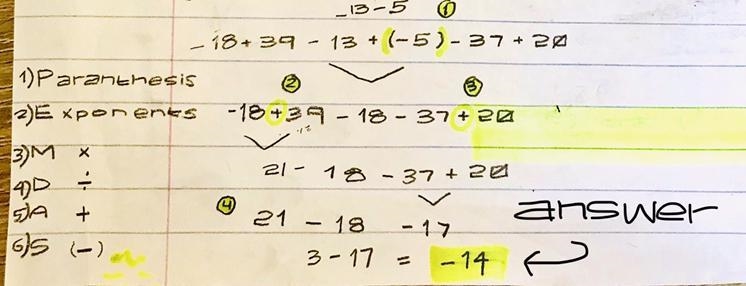 -13-5 1
-18+39-13+(-5)-37+20
1)Paranthesis
2 3
2)Exponents -18+39-18-37+20
3)M ×
21-18-37+20
4)D ÷
4 21-18 -17 answer
5)A +
6)S (-) 3-17 = -14